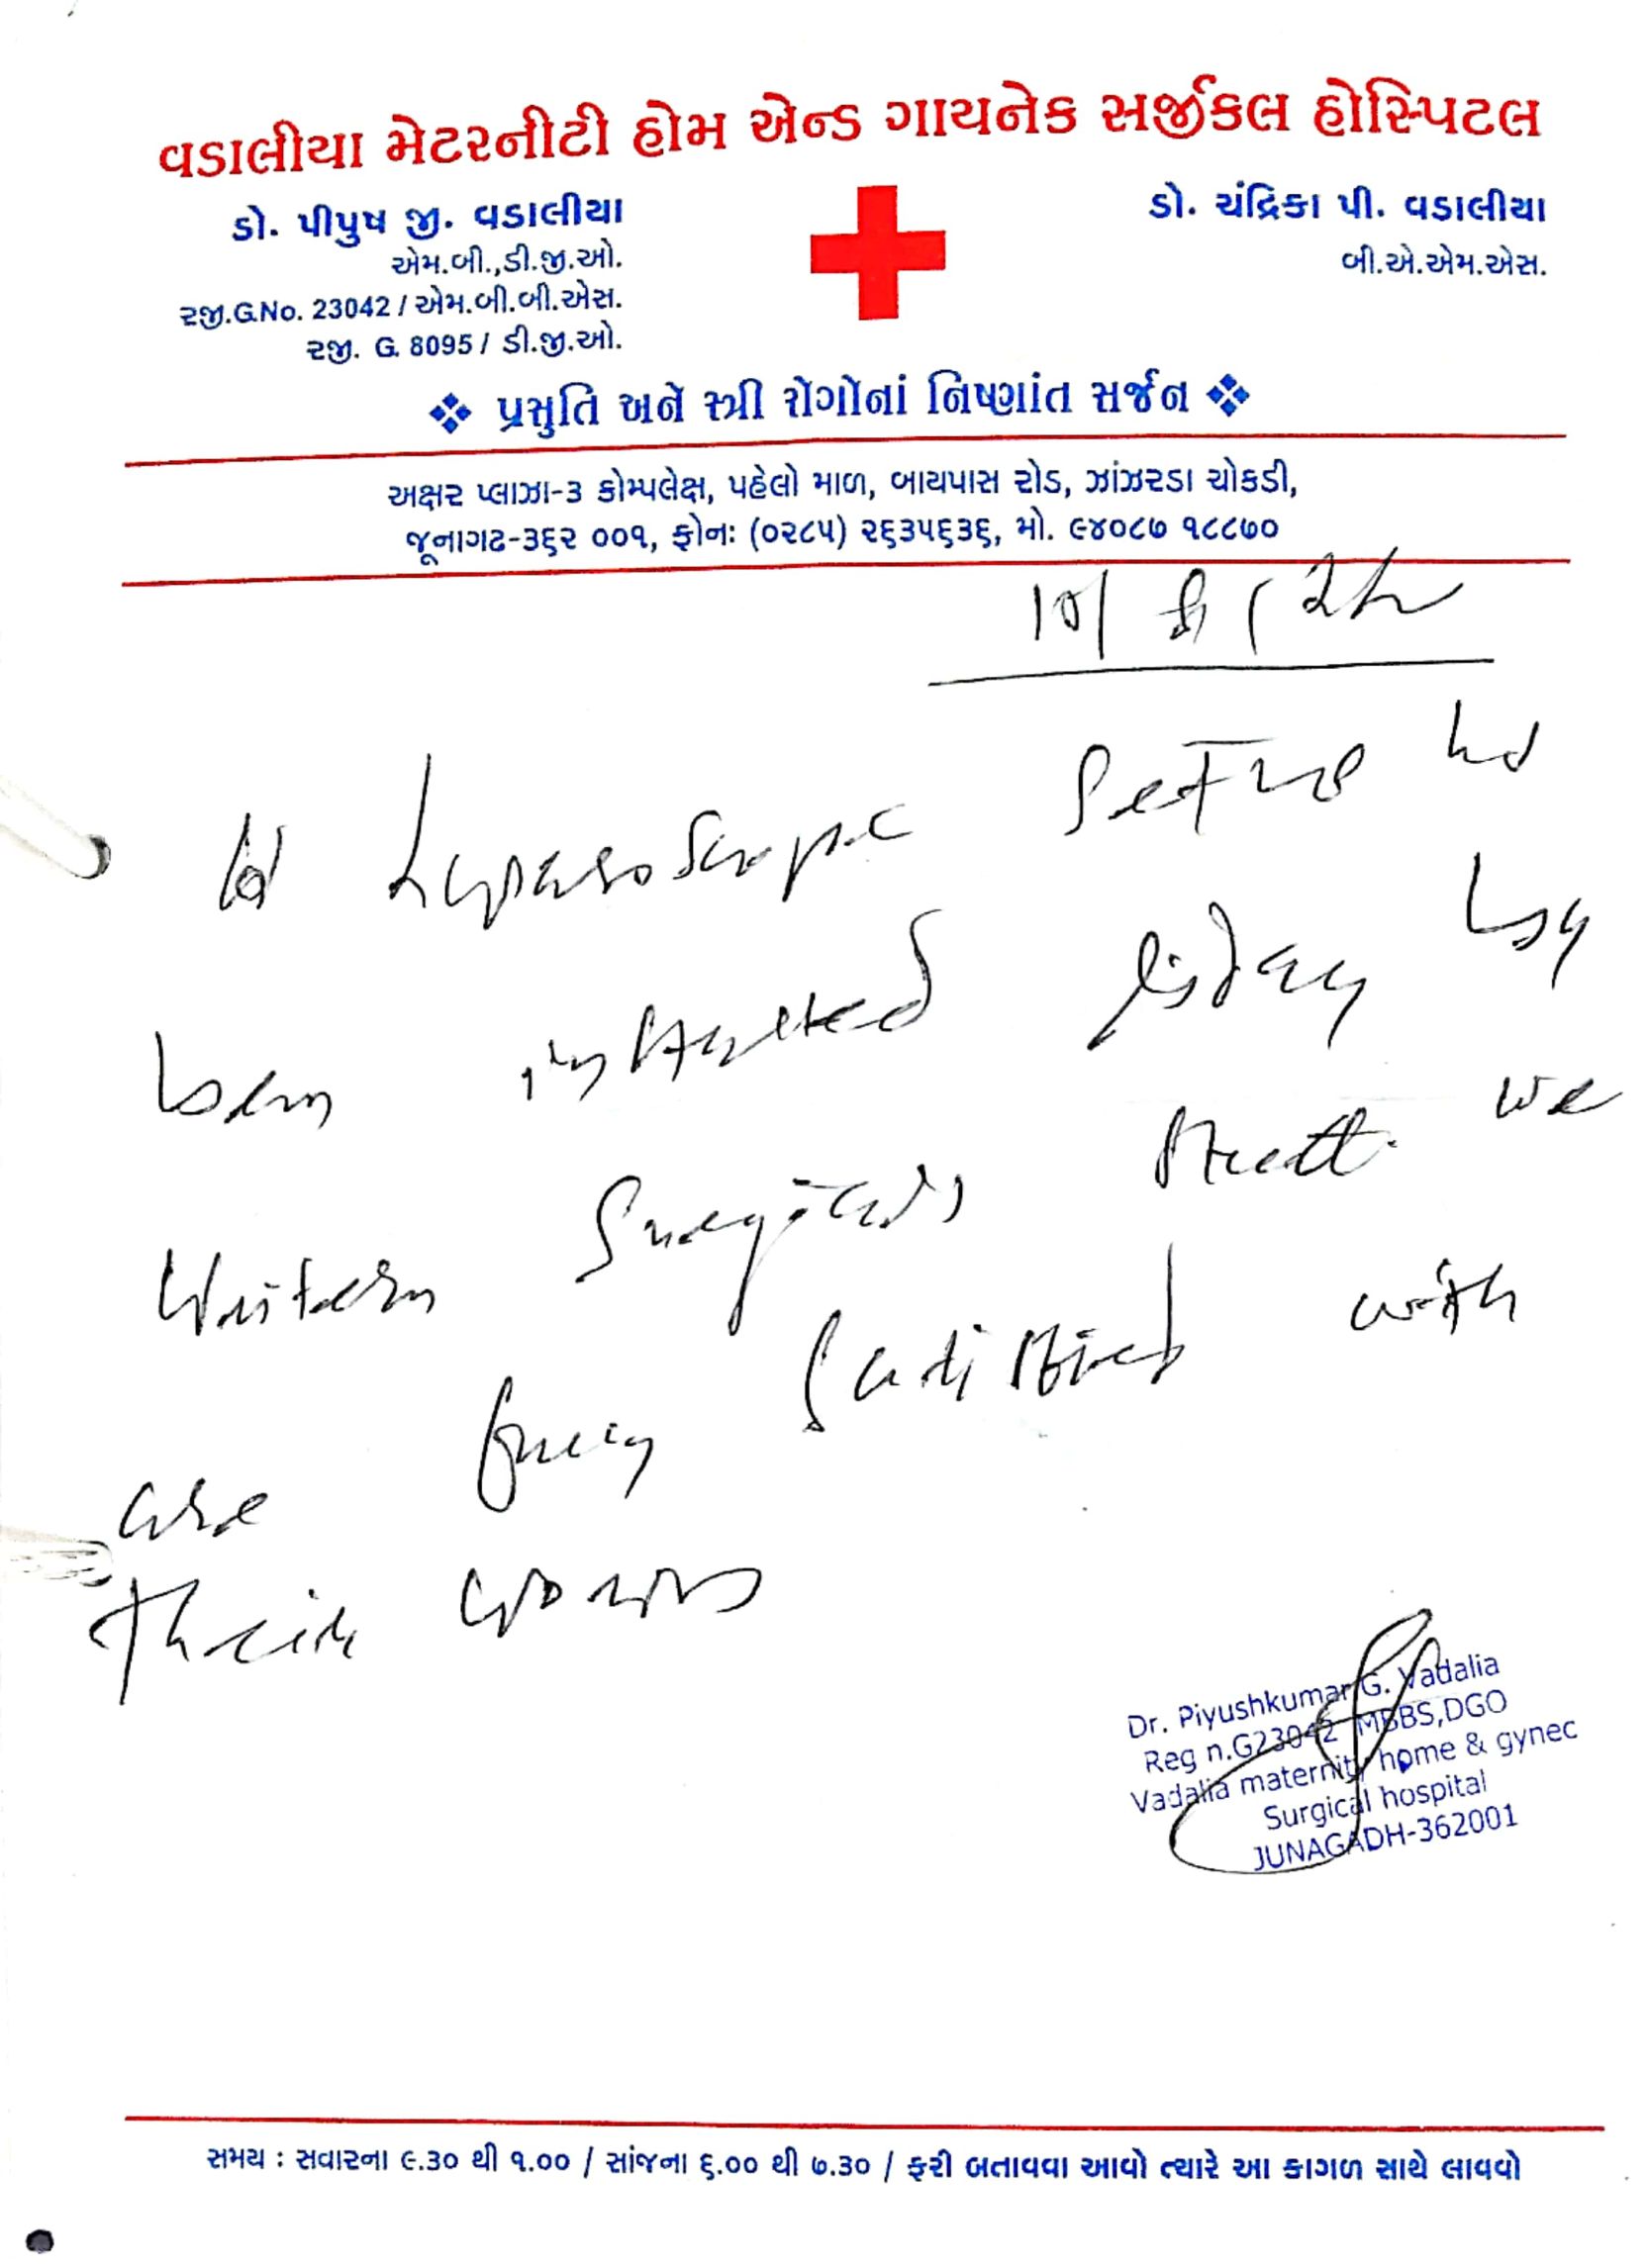 વડાલીયા મેટરનીટી હોમ એન્ડ ગાયનેક સર્જીકલ હોસ્પિટલ
ડો. પીપુષ જી. વડાલીયા
એમ.બી.,ડી.જી.ઓ.
રજી.G.No. 23042 / એમ.બી.બી.એસ.
રજી. G. 8095 / ડી.જી.ઓ.
ડો. ચંદ્રિકા પી. વડાલીયા
બી.એ.એમ.એસ.
❖ પ્રસુતિ અને સ્ત્રી રોગોનાં નિષ્ણાંત સર્જન ❖
અક્ષર પ્લાઝા-૩ કોમ્પલેક્ષ, પહેલો માળ, બાયપાસ રોડ, ઝાંઝરડા ચોકડી,
જૂનાગઢ-૩૬૨ ૦૦૧, ફોનઃ (૦૨૮૫) ૨૬૩૫૬૩૬, મો. ૯૪૦૮૭ ૧૮૮૭૦
Laparoscopic setup
been installed today by
Western Surgicals we
are fully satisfied with
their works
Dr. Piyushkumar G. Vadalia
Reg n.G23042 MBBS,DGO
Vadalia maternity home & gynec
Surgical hospital
JUNAGADH-362001
સમય : સવારના ૯.૩૦ થી ૧.૦૦ / સાંજના ૬.૦૦ થી ૭.૩૦ / ફરી બતાવવા આવો ત્યારે આ કાગળ સાથે લાવવો